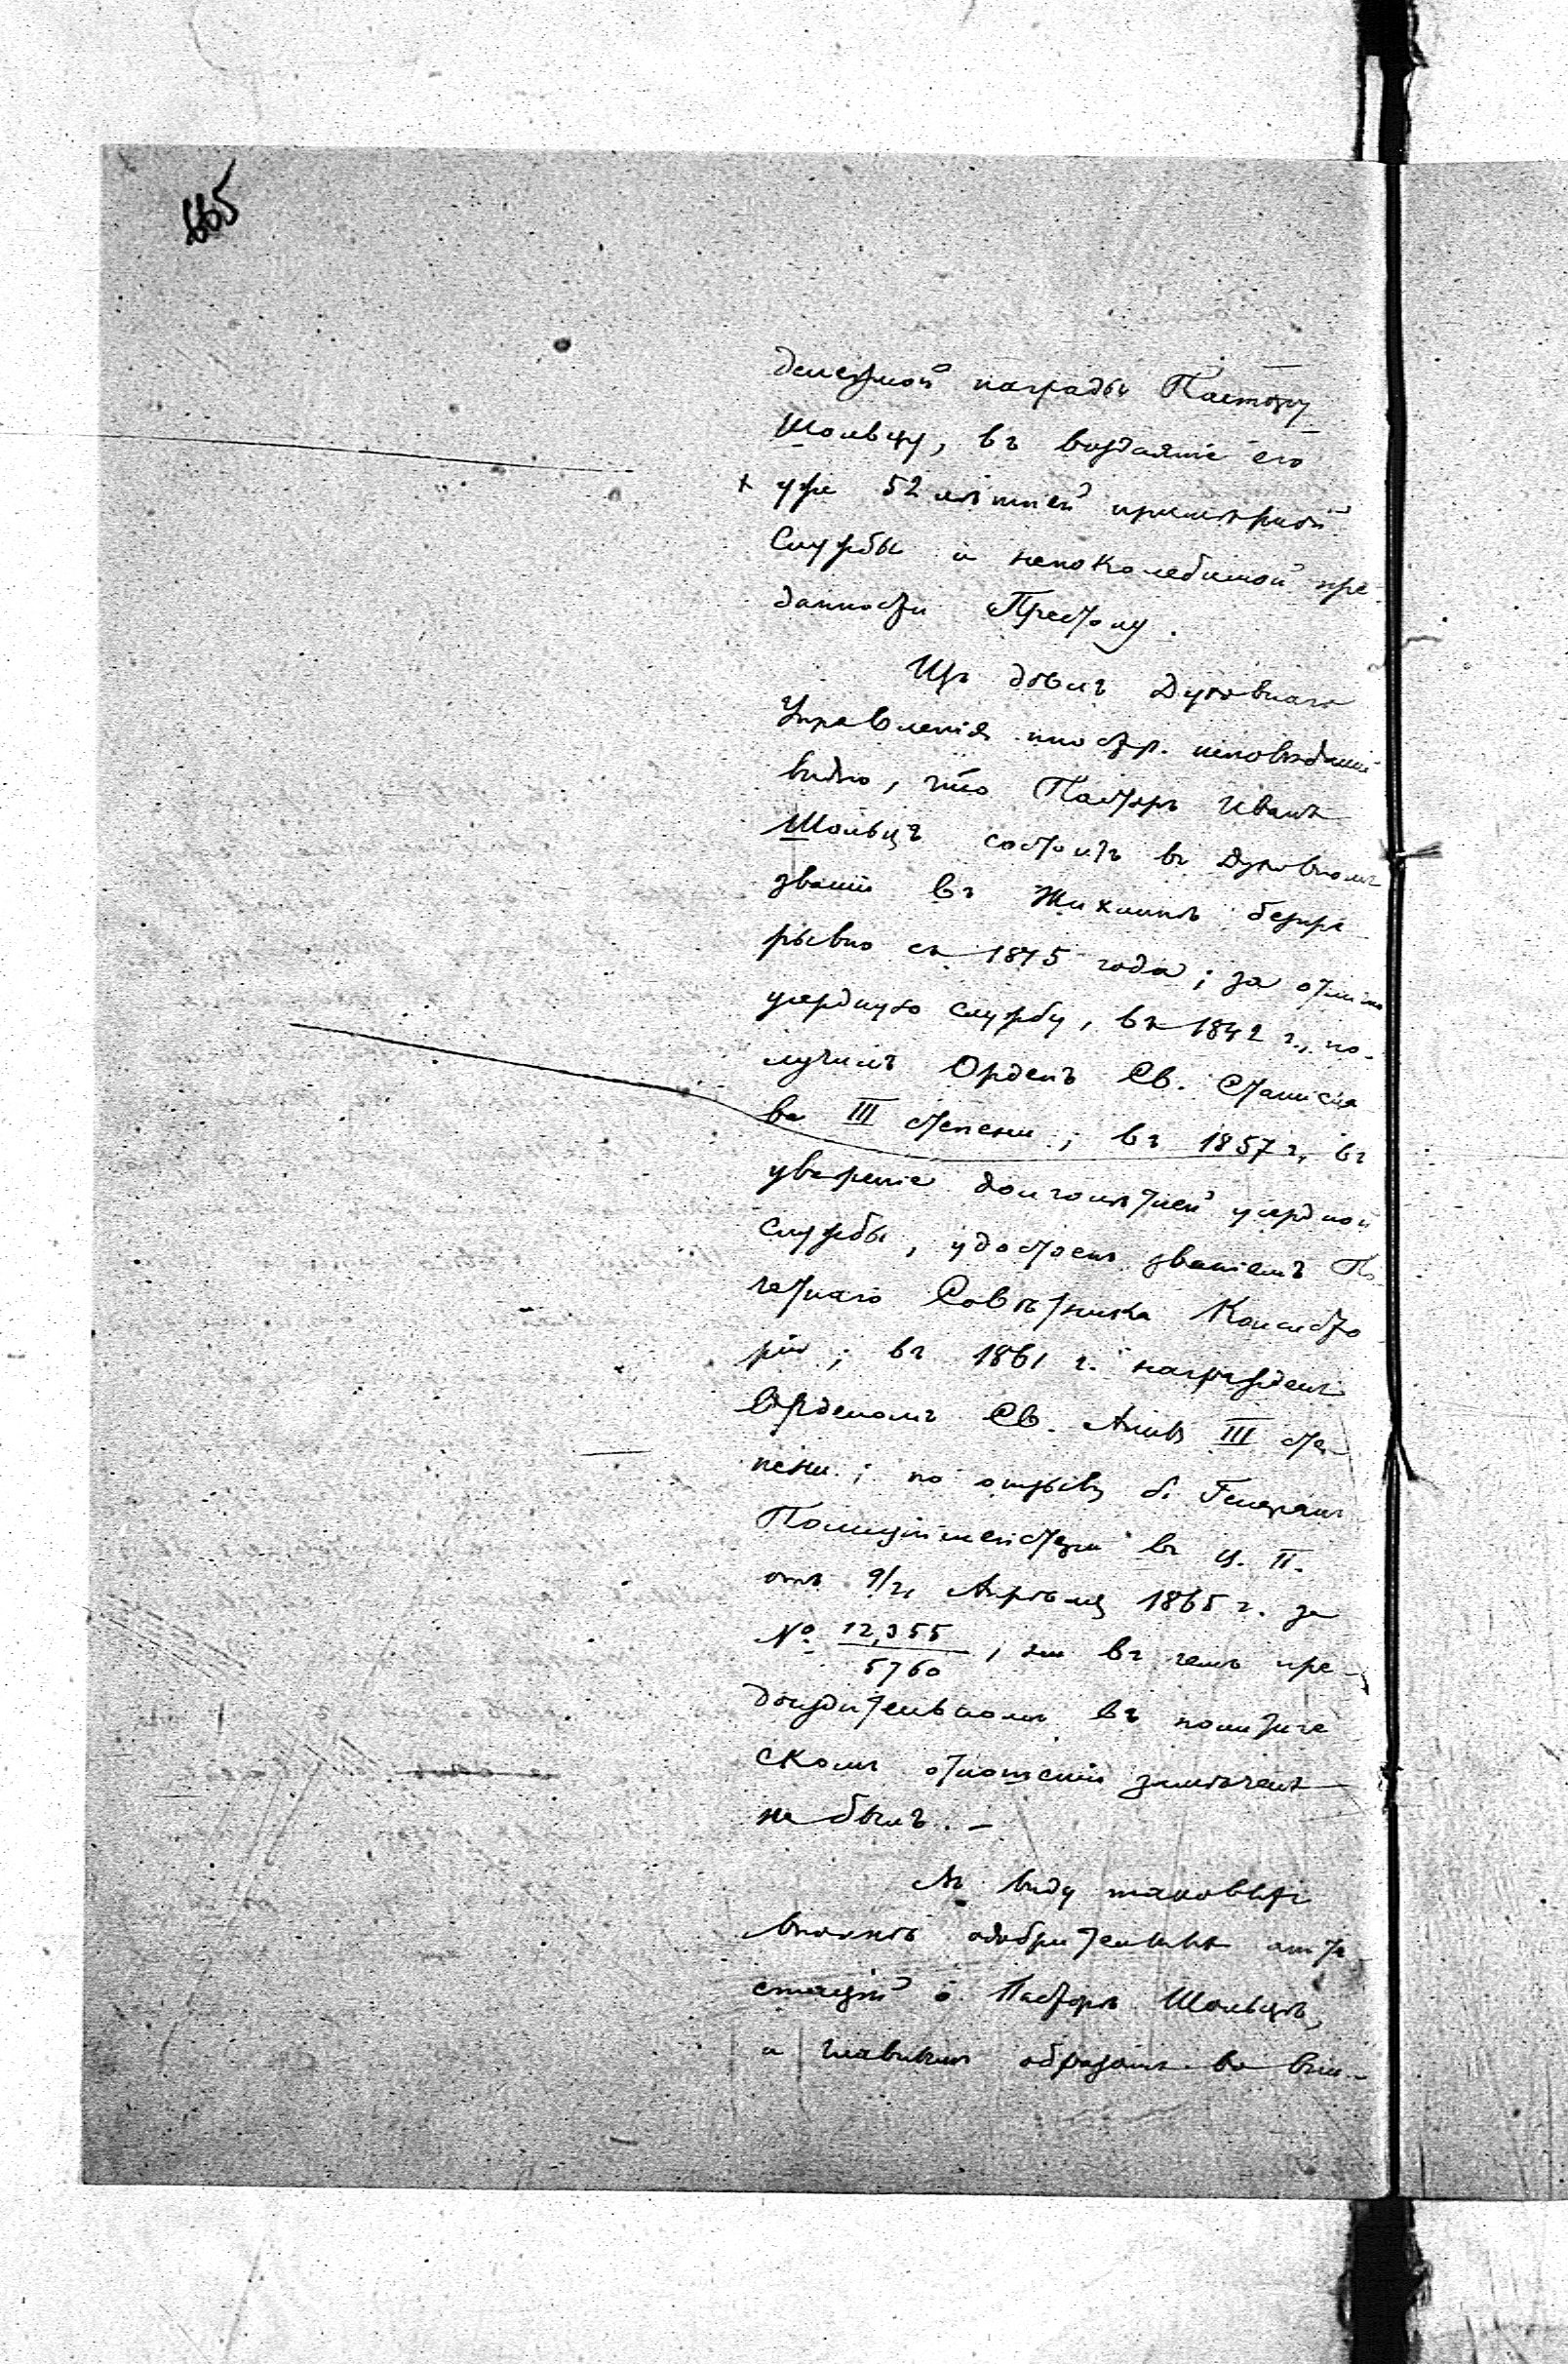 665
денежной награды Пастору
Шольцу, въ воздаяніе его
уже 52 лѣтней примѣрной
Службы и непоколебимой пре-
данности Престолу.
Изъ дѣлъ Духовнаго
Управленія иностр. исповѣданій
видно, что Пасторъ Иванъ
Шольцъ состоитъ въ Духовномъ
званіи въ безпре
рывно съ 1815 года; за отлично
усердную службу, въ 1842 г., по-
лучилъ Орденъ Св. Станисла
ва III степени; въ 1857 г., въ
уваженіе долголѣтней усердной
службы, удостоенъ званіемъ По-
четнаго Совѣтника Консисто
ріи; въ 1861 г. награжденъ
Орденомъ Св. Анны III сте-
пени; по отзыву б. Генералъ
Полиціймейстера въ Ц. П.
отъ 9/21 Апрѣля 1865 г. за
№ 12,355/5760, ни въ чемъ пре-
досудительномъ въ полити че
скомъ отношеніи замѣченъ
не былъ. –
Въ виду таковыхъ
вполнѣ одобрительныхъ атте-
стацій о Пасторѣ Шольцѣ,
и главнымъ образомъ во вни-